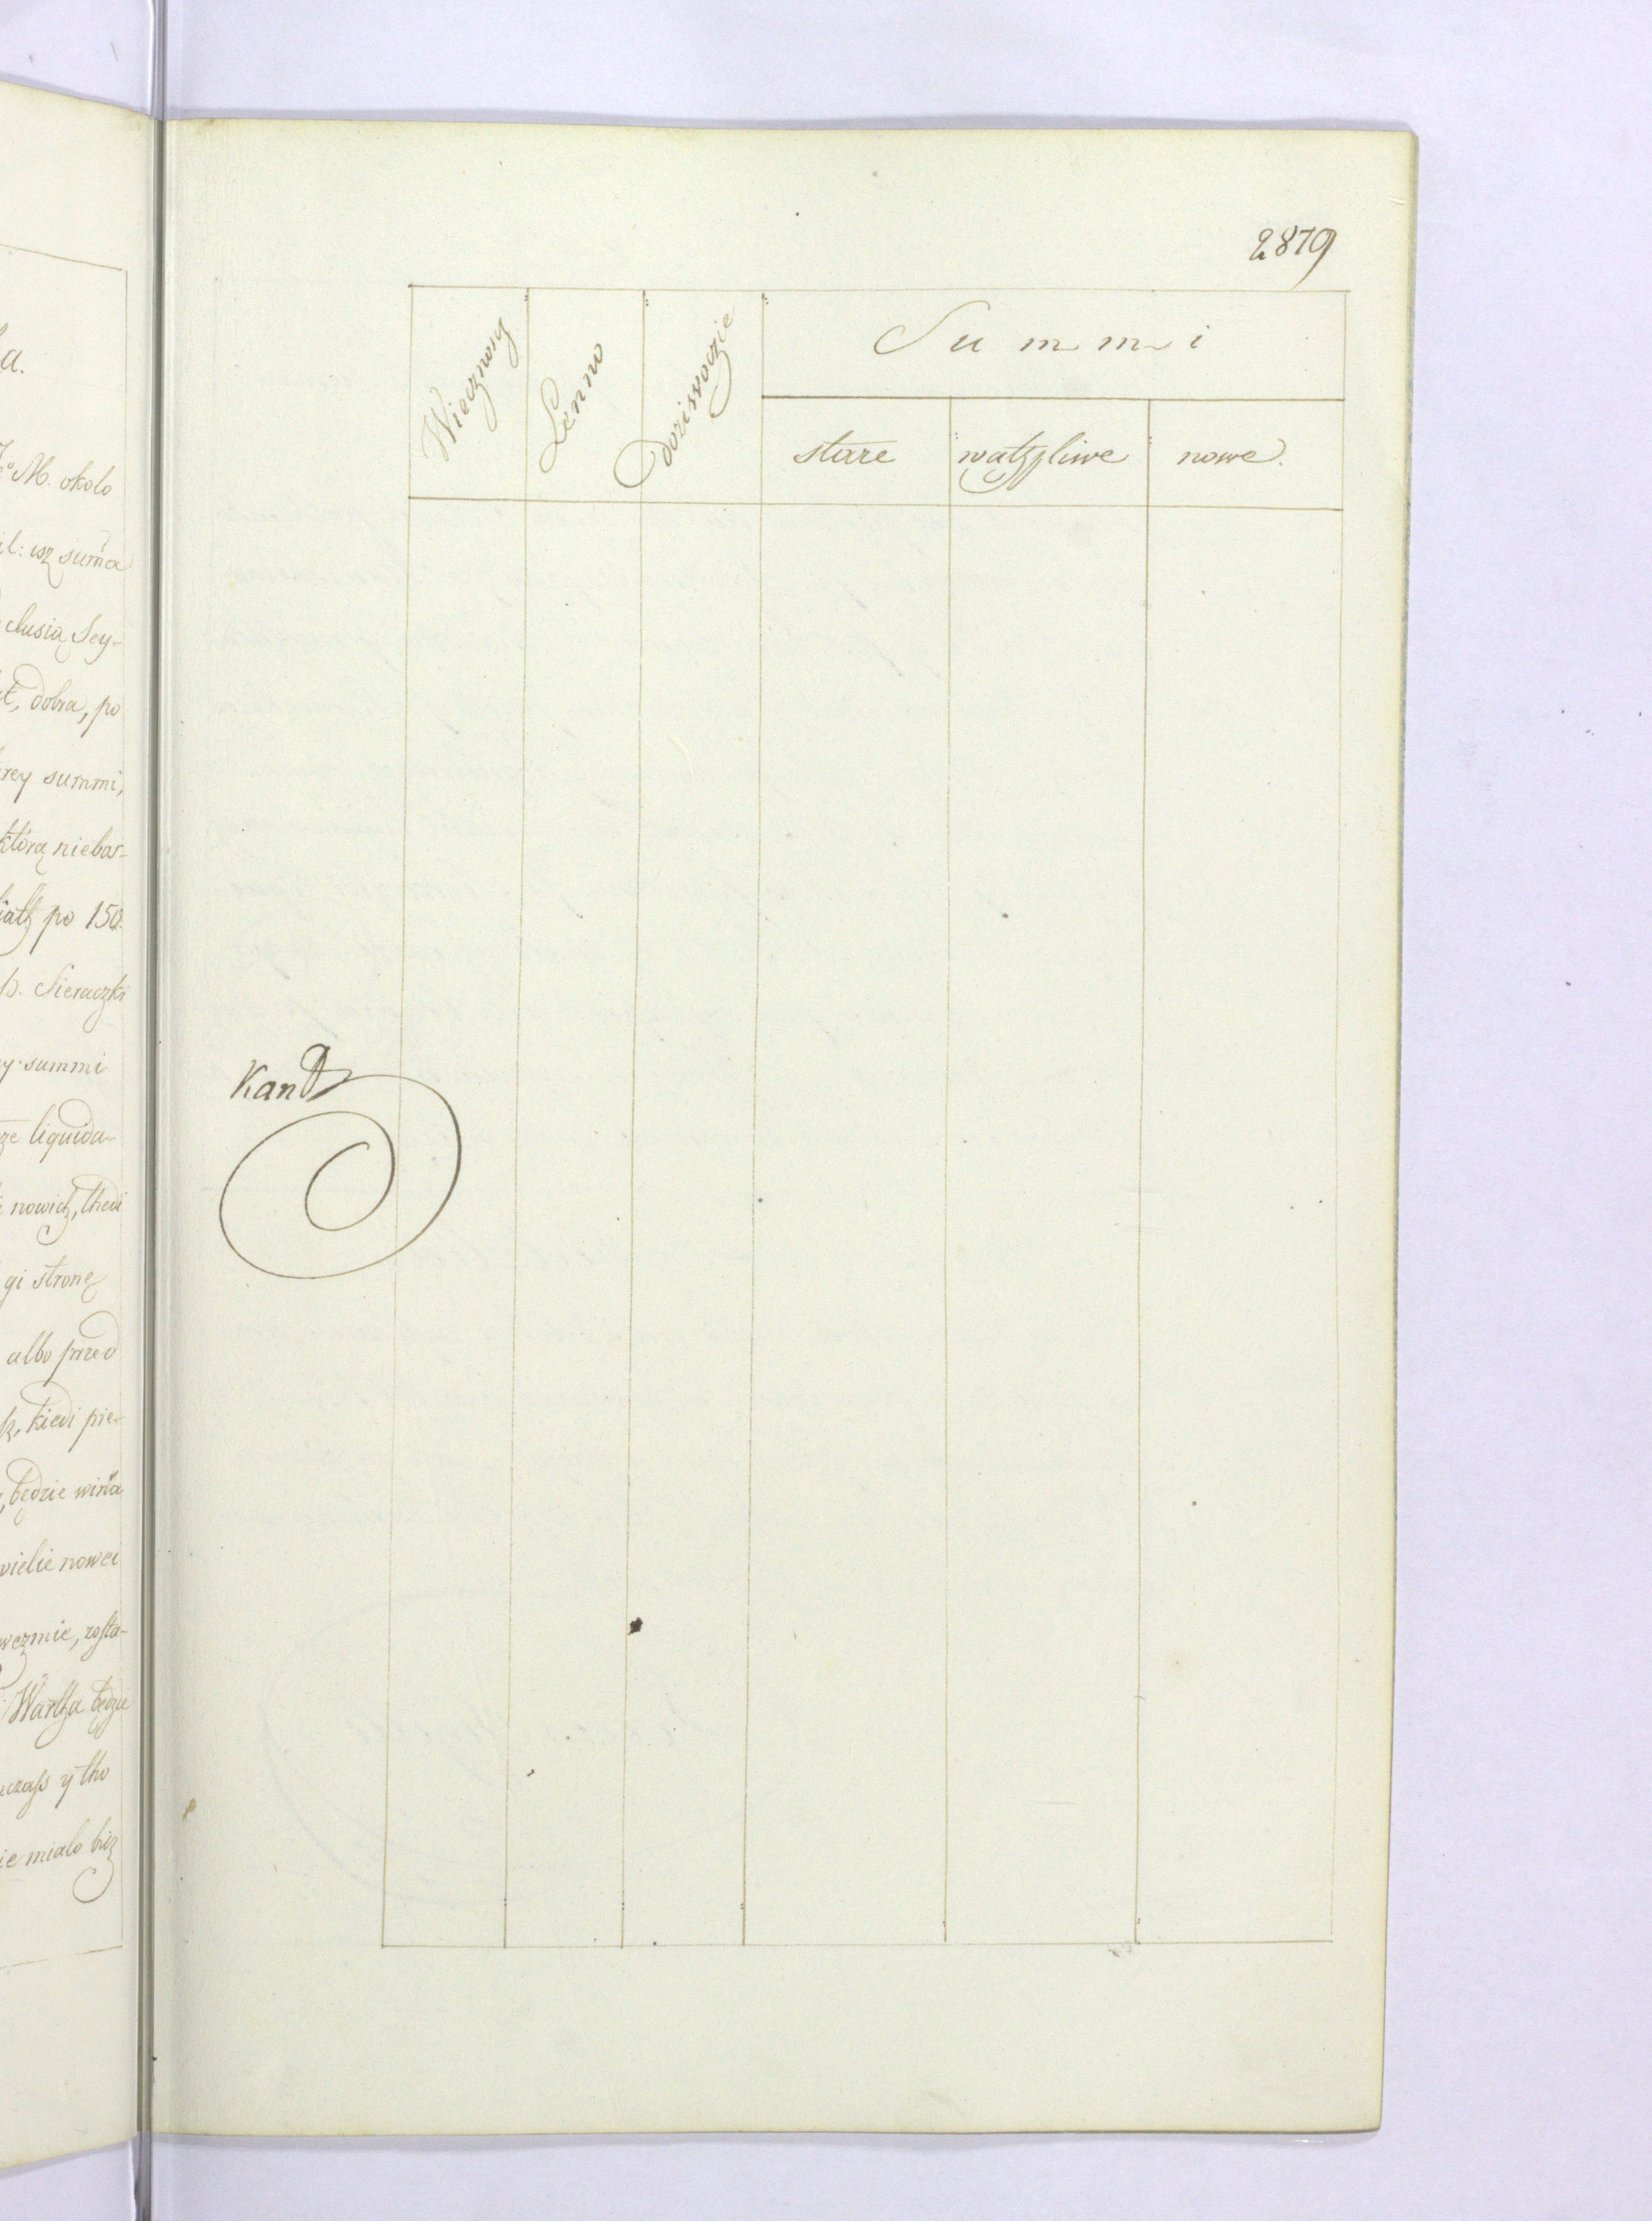 a.
M. okolo
il: isz suma
clusią Sey-
dobra, po
rey summi,
którą niebar-
po 150.
p. Sieraczki
y summi
ze liquida-
nowich, thedi
gi stronę
albo przed
kiedi pie-
będzie wina
wielie nowei
wezmie, zosta-
Wartha będzie
czass y tho
ie mialo bicz
2879
Wiecznosz
Lenno
Doziwoczie
Summi
stare
watszpliwe
nowe.
Kand